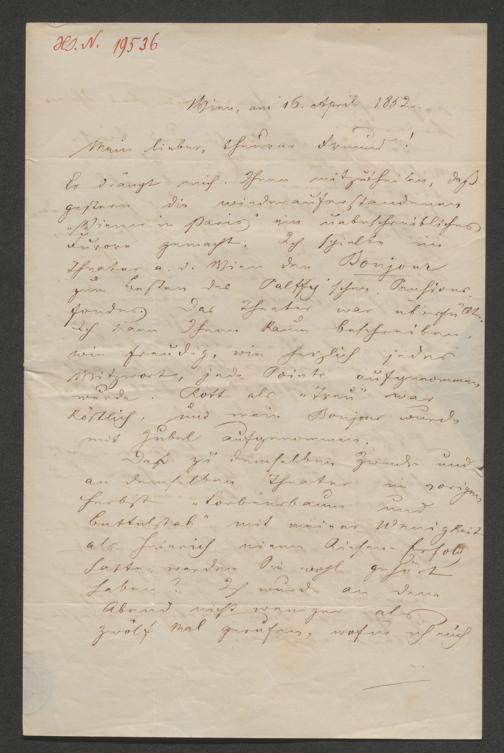 H.I.N. 19536
Wien, am 16. April 1852.
Mein lieber, theurer Freund!
Es drängt mich, Ihnen mitzutheilen, daß
gestern die wiederauferstandenen
„Wiener in Paris" ein unbeschreibliches
Furore gemacht. Ich spielte im
Theater a. d. Wien den Bonjour
zum Besten des Palffy'schen Pensions
fondes. Das Theater war überfüllt.
Ich kann Ihnen kaum beschreiben,
wie freudig, wie herzlich jedes
Witzwort, jede Pointe aufgenommen
wurde. Rott als „Treu" war
köstlich, und mein Bonjour wurde
mit Jubel aufgenommen.
Daß zu demselben Zwecke und
an demselben Theater im vorigen
Herbst „Lorbeerbaum und
Bettelstab" mit meiner Wenigkeit
als Heinrich einen Erfolg
hatte, werden Sie wohl gehört
haben? Ich wurde an dem
Abend nicht weniger als
zwölf Mal gerufen, wofür ich auch